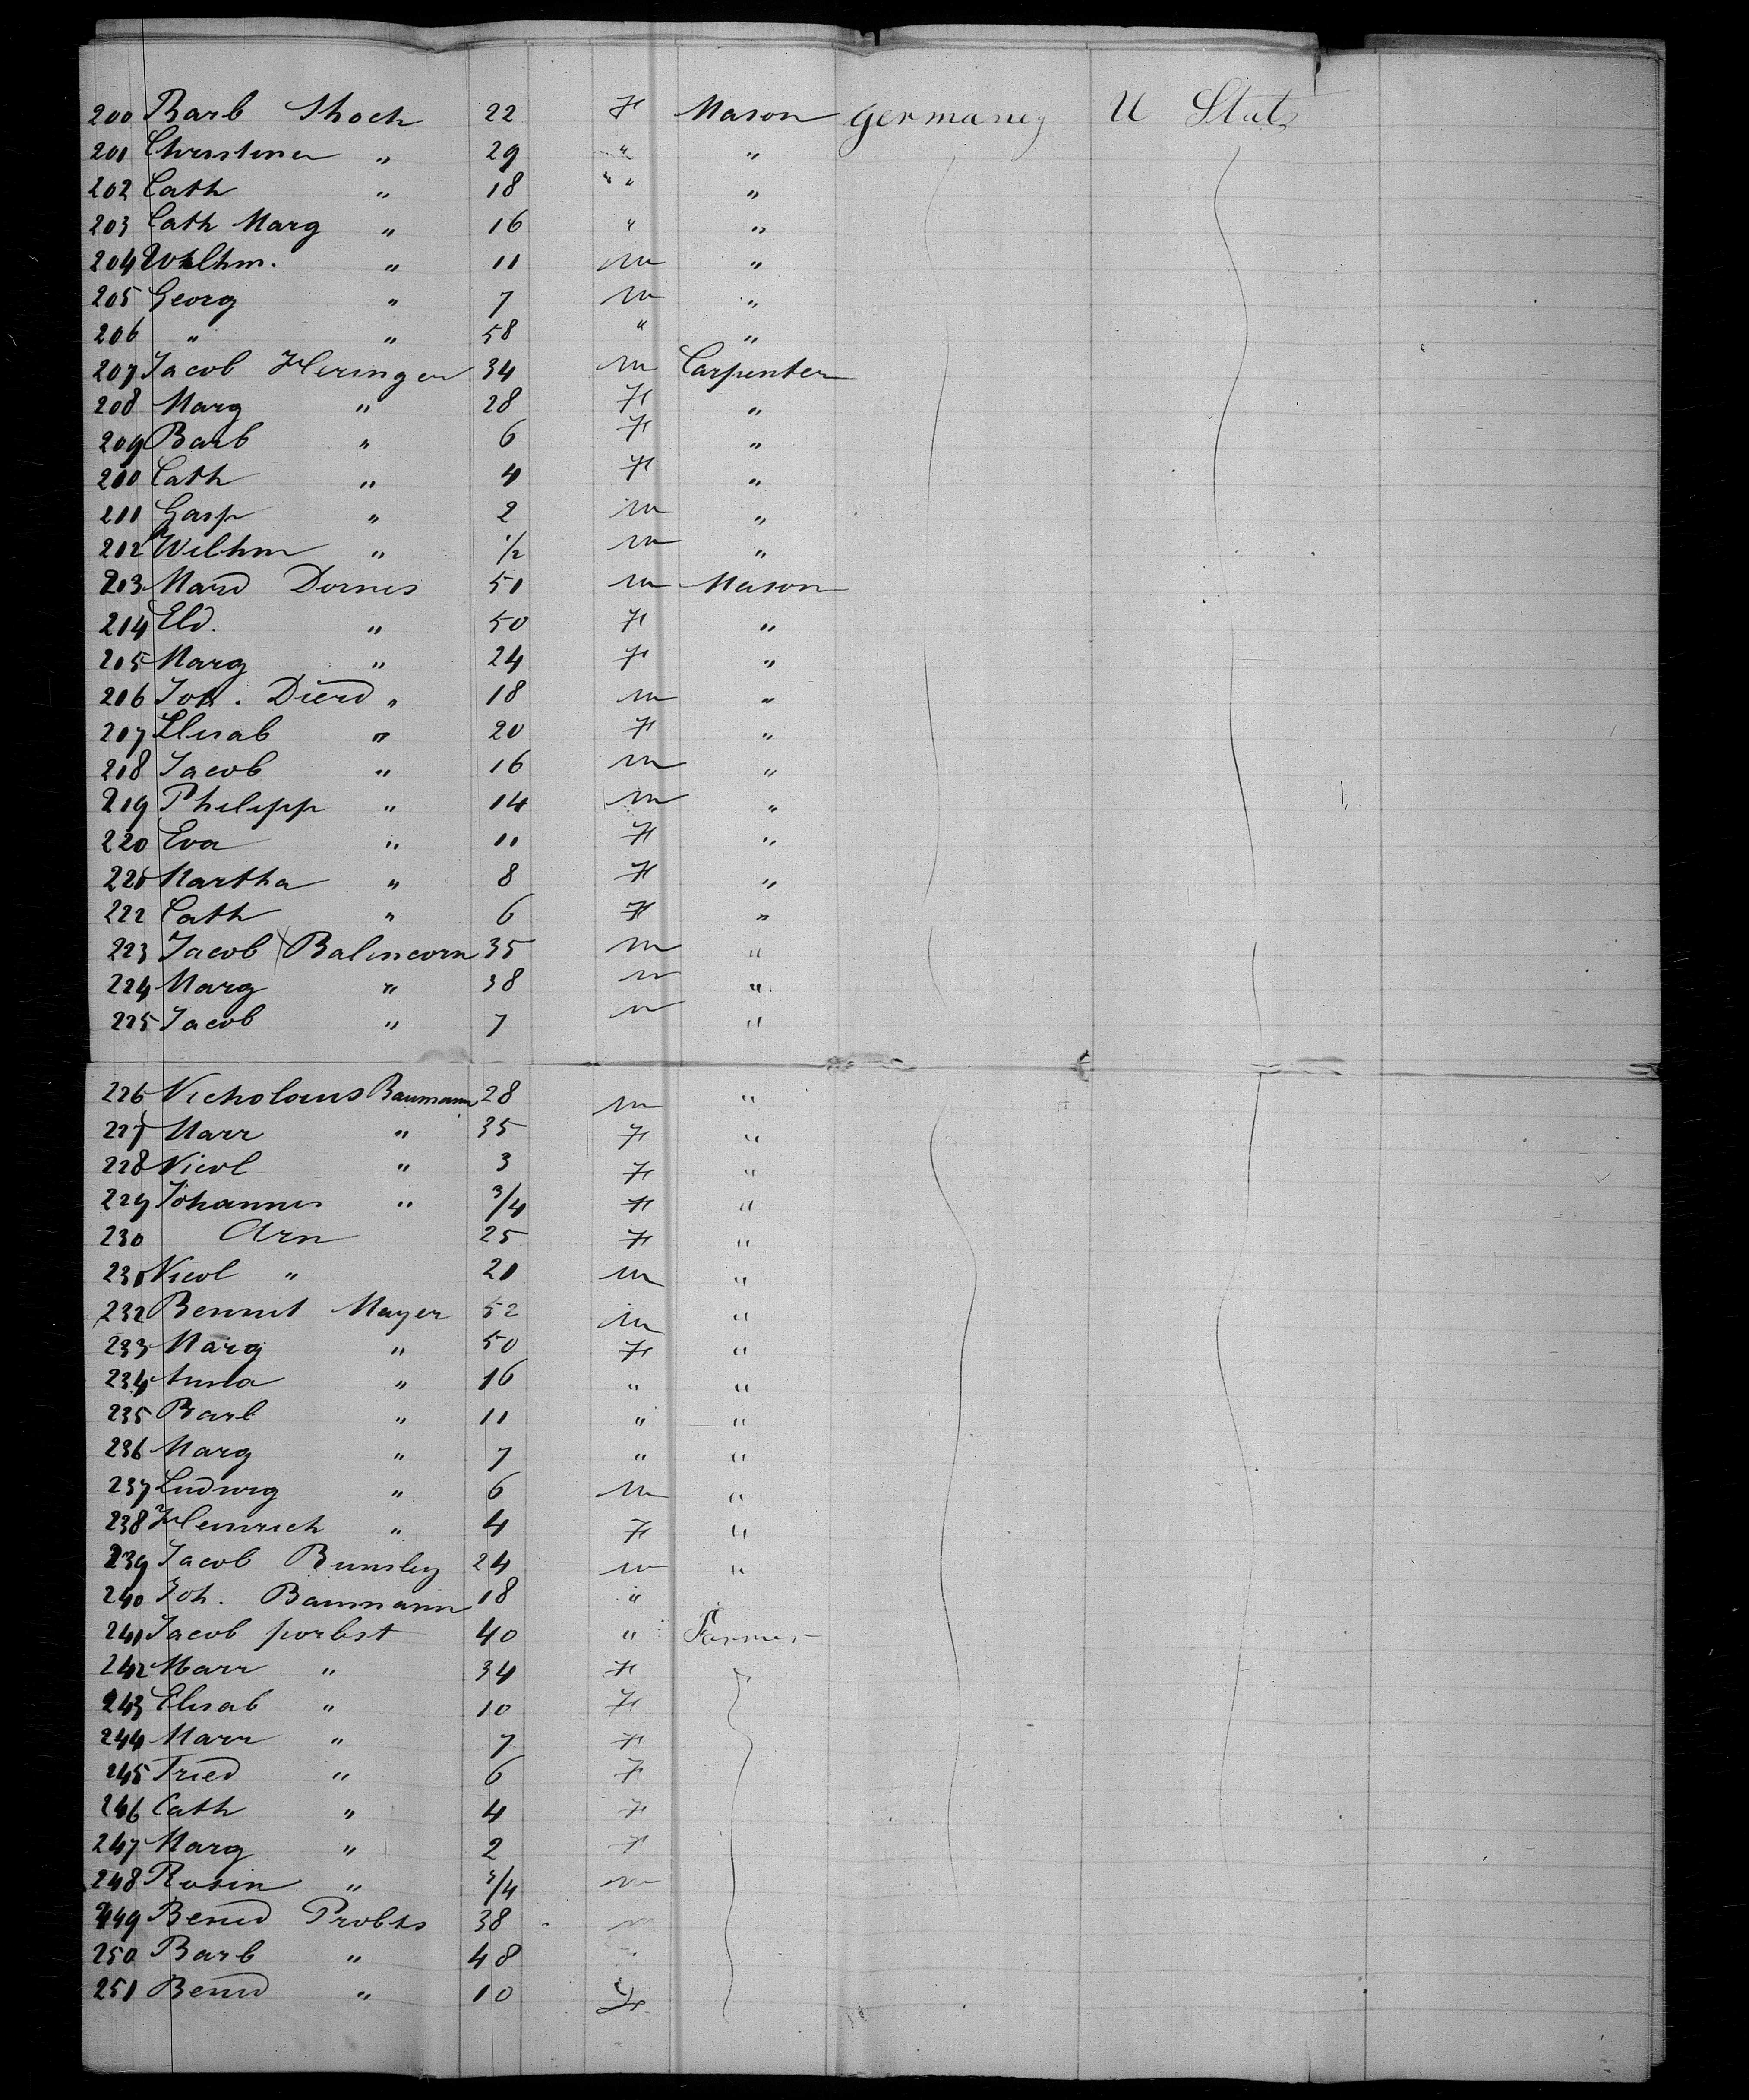 200 Barb Shoch 22 F Mason germaney U Stats
201 Christina " 29 " "
202 Cath " 18 " "
203 Cath Marg " 16 " "
204 Wilhm. " 11 m "
205 Georg " 7 m "
206 " " 58 " "
207 Jacob Heringer 34 m Carpenter
208 Marg " 28 F "
209 Barb " 6 F "
210 Cath " 4 F "
211 Gasp " 2 m "
212 Wilhm " 1/2 m "
213 Dornes 51 m Mason
214 Eld. " 50 F "
215 Marg " 24 F "
216 Joh. Dierd " 18 m "
217 Elisab " 20 F "
218 Jacob " 16 m "
219 Philipp " 14 m "
220 Eva " 11 F "
221 Martha " 8 F "
222 Cath " 6 F "
223 Jacob Balincorn 35 m "
224 Marg " 38 m "
225 Jacob " 7 m "
226 Nicholaus Baumann 28 m "
227 Marr " 35 F "
228 Nicol " 3 F "
229 Johannes " 3/4 F "
230 Arn 25 F "
231 Nicol " 21 m "
232 Bennet Mayer 52 m "
233 Marg " 50 F "
234 Anna " 16 " "
235 Barb " 11 " "
236 Marg " 7 " "
237 Ludwig " 6 m "
238 Heinrich " 4 F "
239 Jacob Bunsley 24 m "
240 Joh. Baumann 18 "
241 Jacob porbst 40 " Farmer
242 Marr " 34 F
243 Elisab " 10 F
244 Marr " 7 F
245 Fried " 6 F
246 Cath " 4 F
247 Marg " 2 F
248 Rosin " 3/4 m
249 Bernd Probts 38 m
250 Barb " 48
251 Bernd " 10